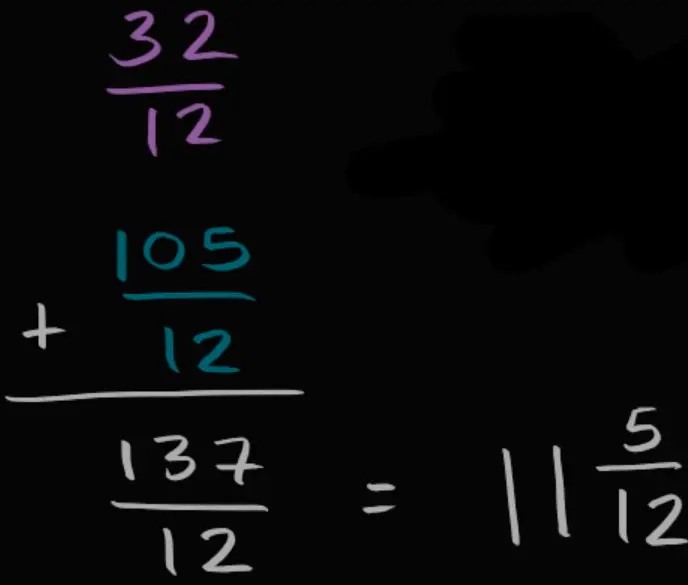 32
12
105
+ 12
137
12 = 11 5/12